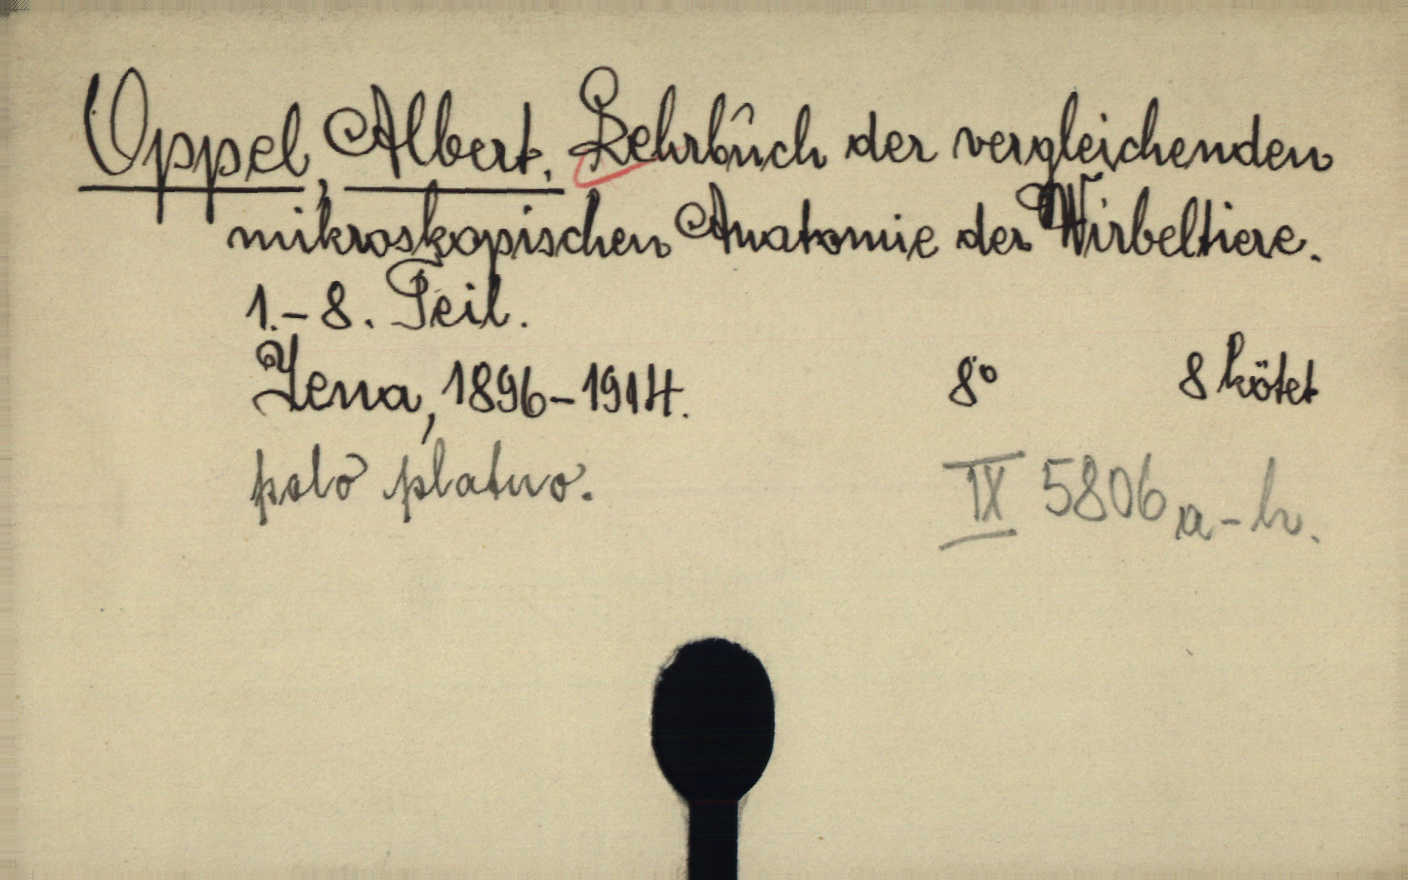 Oppel, Albert. Lehrbuch der vergleichenden
mikroskopischen Anatomie der Wirbeltiere.
1.-8. Teil.
Jena, 1896-1914. 8° 8 kötet
IX 5806 a-h.